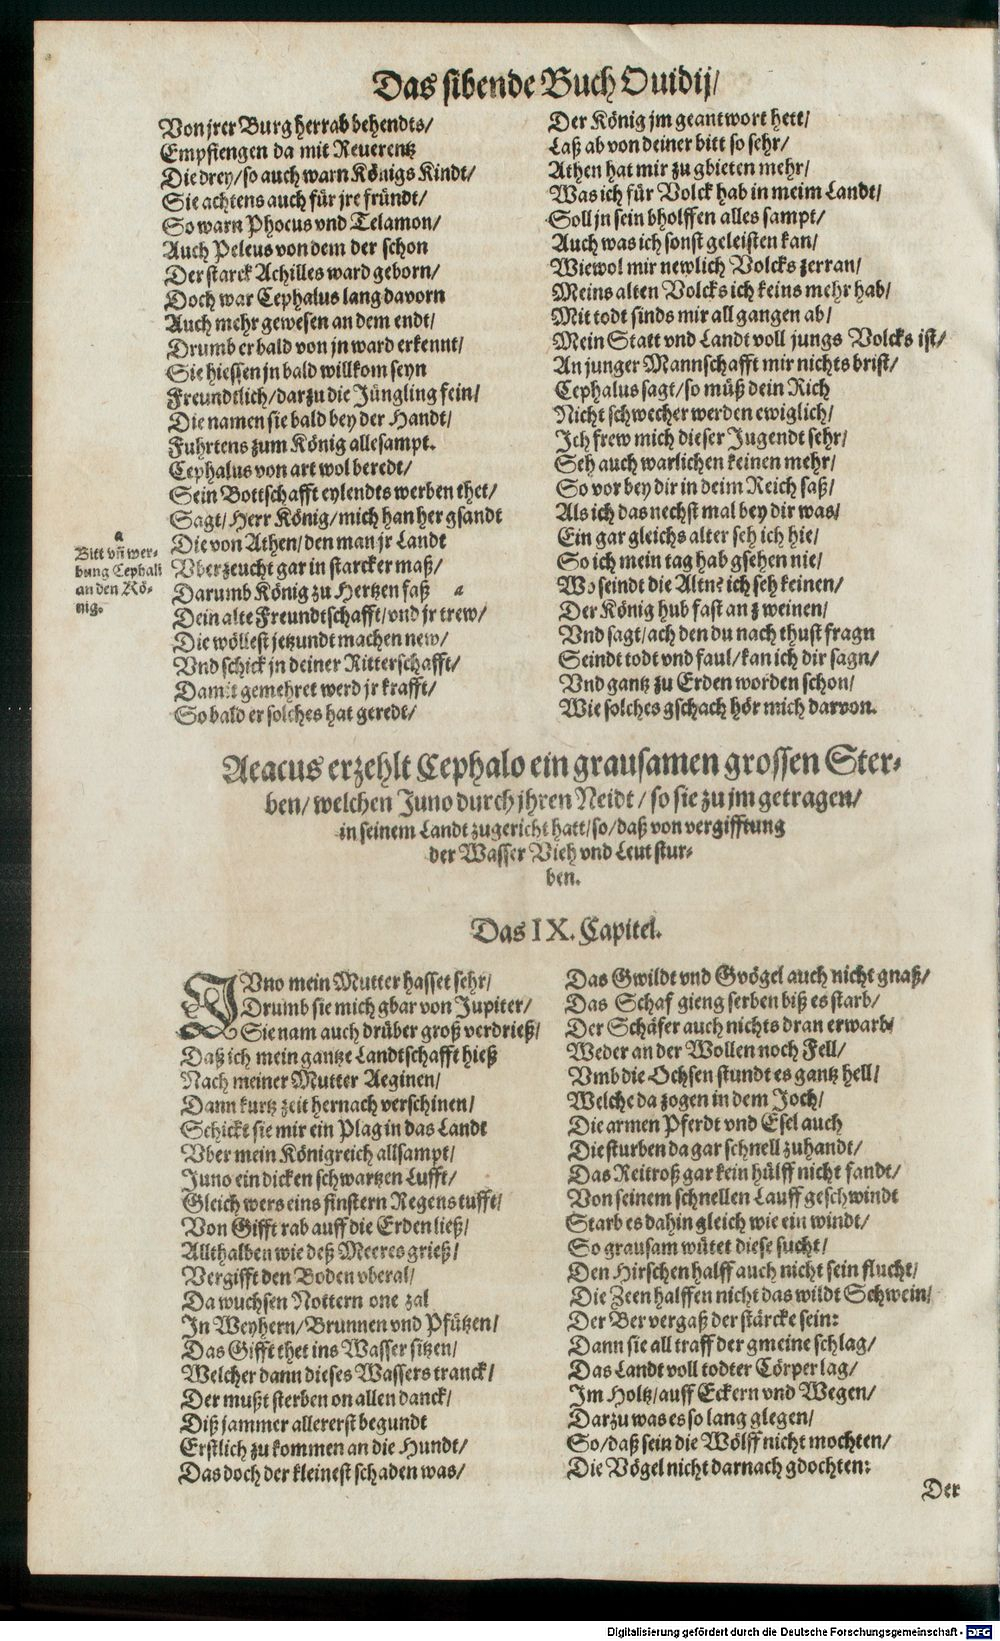 Das sibende Buch Ouidij/
Von jrer Burg herrab behendts/
Empfiengen da mit Reuerentz
Die drey/ so auch warn Königs Kindt/
Sie achtens auch für jre fründt/
So warn Phocus vnd Telamon/
Auch Peleus von dem der schon
Der starck Achilles ward geborn/
Doch war Cephalus lang davorn
Auch mehr gewesen an dem endt/
Drumb er bald von jn ward erkennt/
Sie hiessen jn bald willkom seyn
Freundtlich/ darzu die Jüngling fein/
Die namen sie bald bey der Handt/
Fuhrtens zum König allesampt.
Cephalus von art wol beredt/
Sein Bottschafft eylendts werben thet/
Sagt/ Herr König/ mich han her gsandt
Die von Athen/ den man jr Landt
Vberzeucht gar in starcker maß/
Darumb König zu Hertzen faß a
Dein alte Freundtschafft/ vnd jr trew/
Die wöllest jetzundt machen new/
Vnd schick jn deiner Ritterschafft/
Damit gemehret werd jr krafft/
So bald er solches hat geredt/
a
Bitt vñ wer-
bung Cephali
an den Kö-
nig.
Der König jm geantwort hett/
Laß ab von deiner bitt so sehr/
Athen hat mir zu gbieten mehr/
Was ich für Volck hab in meim Landt/
Soll jn sein bholffen alles sampt/
Auch was ich sonst geleisten kan/
Wiewol mir newlich Volcks zerran/
Meins alten Volcks ich keins mehr hab/
Mit todt sinds mir all gangen ab/
Mein Statt vnd Landt voll jungs Volcks ist/
An junger Mannschafft mir nichts brist/
Cephalus sagt/ so müß dein Rich
Nicht schwecher werden ewiglich/
Ich frew mich dieser Jugendt sehr/
Seh auch warlichen keinen mehr/
So vor bey dir in deim Reich saß/
Als ich das nechst mal bey dir was/
Ein gar gleichs alter seh ich hie/
So ich mein tag hab gsehen nie/
Wo seindt die Altn? ich seh keinen/
Der König hub fast an z weinen/
Vnd sagt/ ach den du nach thust fragn
Seindt todt vnd faul/ kan ich dir sagn/
Vnd gantz zu Erden worden schon/
Wie solches gschach hör mich darvon.
Aeacus erzehlt Cephalo ein grausamen grossen Ster-
ben/ welchen Juno durch jhren Neidt/ so sie zu jm getragen/
in seinem Landt zugericht hatt/ so/ daß von vergifftung
der Wasser Vieh vnd Leut stur-
ben.
Das IX. Capitel.
JVno mein Mutter hasset sehr/
Drumb sie mich gbar von Jupiter/
Sie nam auch drüber groß verdrieß/
Daß ich mein gantze Landtschafft hieß
Nach meiner Mutter Aeginen/
Dann kurtz zeit hernach verschinen/
Schickt sie mir ein Plag in das Landt
Vber mein Königreich allsampt/
Juno ein dicken schwartzen Lufft/
Gleich wers eins finstern Regens tufft/
Von Gifft rab auff die Erden ließ/
Allthalben wie deß Meeres grieß/
Vergifft den Boden vberal/
Da wuchsen Nottern one zal
In Weyhern/ Brunnen vnd Pfützen/
Das Gifft thet ins Wasser sitzen/
Welcher dann dieses Wassers tranck/
Der mußt sterben on allen danck/
Diß jammer allererst begundt
Erstlich zu kommen an die Hundt/
Das doch der kleinest schaden was/
Das Gwildt vnd Gvögel auch nicht gnaß/
Das Schaf gieng serben biß es starb/
Der Schäfer auch nichts dran erwarb/
Weder an der Wollen noch Fell/
Vmb die Ochsen stundt es gantz hell/
Welche da zogen in dem Joch/
Die armen Pferdt vnd Esel auch
Die sturben da gar schnell zuhandt/
Das Reitroß gar kein hülff nicht fandt/
Von seinem schnellen Lauff geschwindt
Starb es dahin gleich wie ein windt/
So grausam wütet diese sucht/
Den Hirschen halff auch nicht sein flucht/
Die Zeen halffen nicht das wildt Schwein/
Der Ber vergaß der stärcke sein:
Dann sie all traff der gmeine schlag/
Das Landt voll todter Cörper lag/
Im Holtz/ auff Eckern vnd Wegen/
Darzu was es so lang glegen/
So/ daß sein die Wölff nicht mochten/
Die Vögel nicht darnach gdochten:
Der
Digitalisierung gefördert durch die Deutsche Forschungsgemeinschaft - DFG